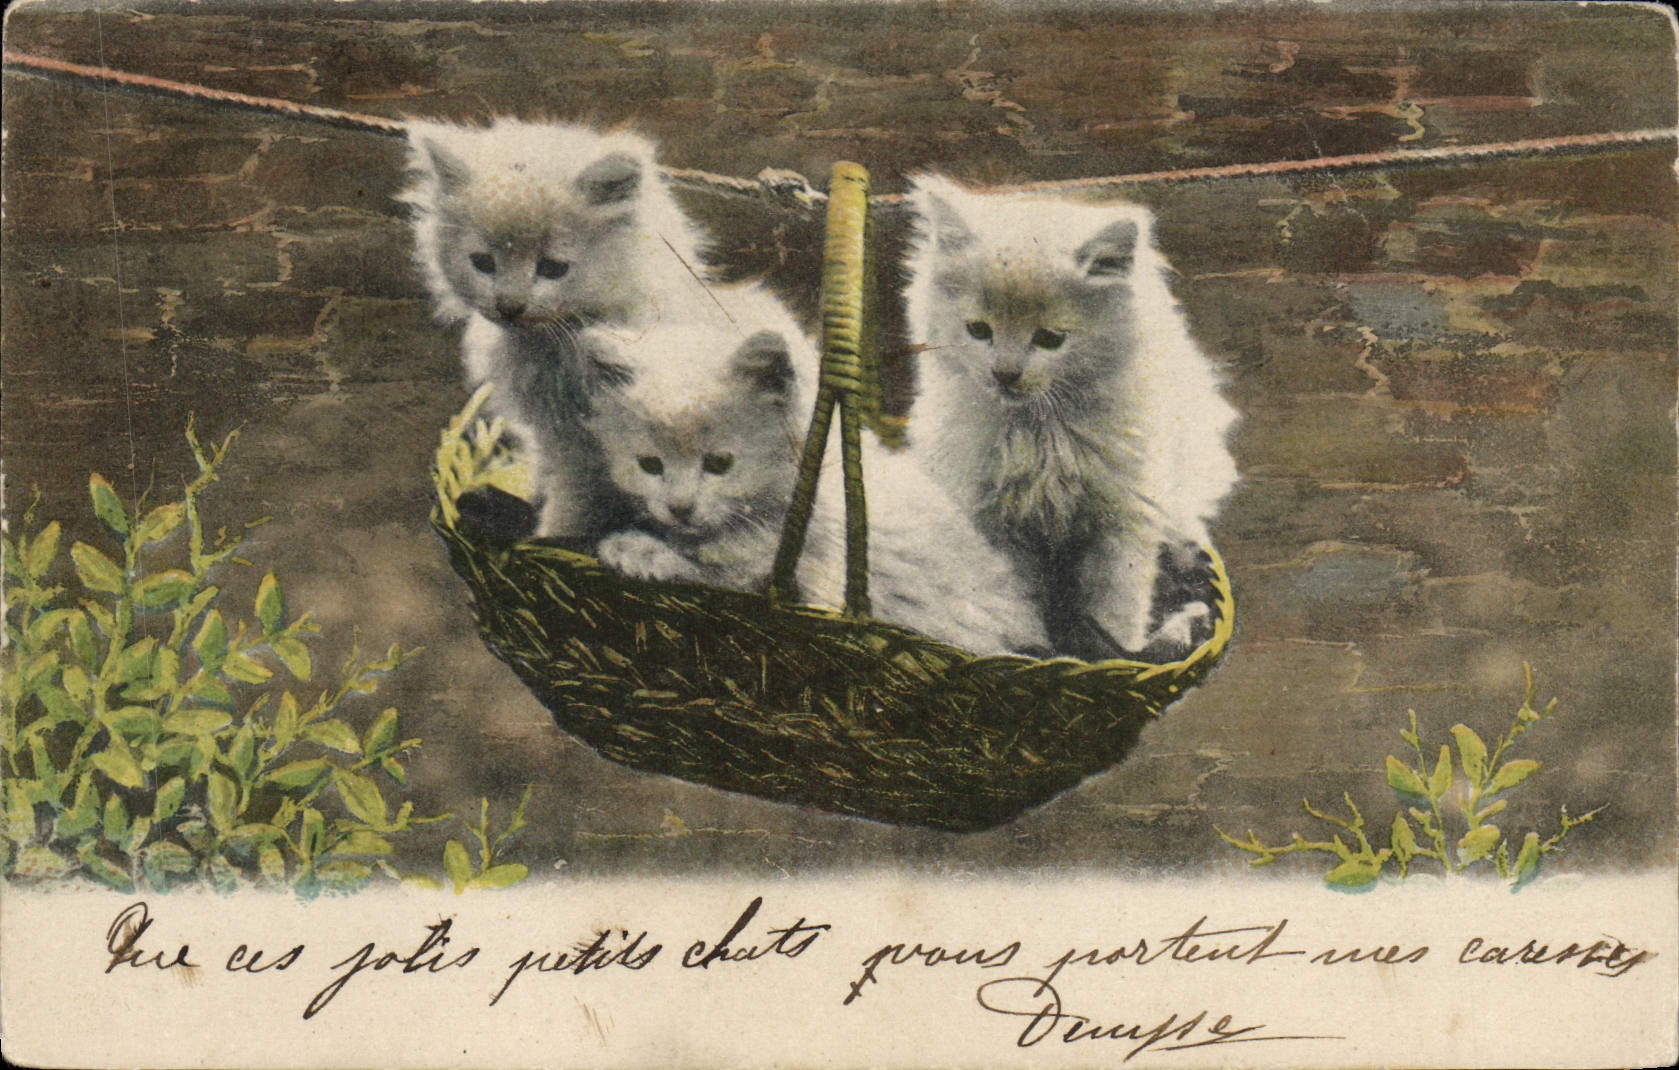 Que ces jolis petits chats vous portent mes caresses
Denysse